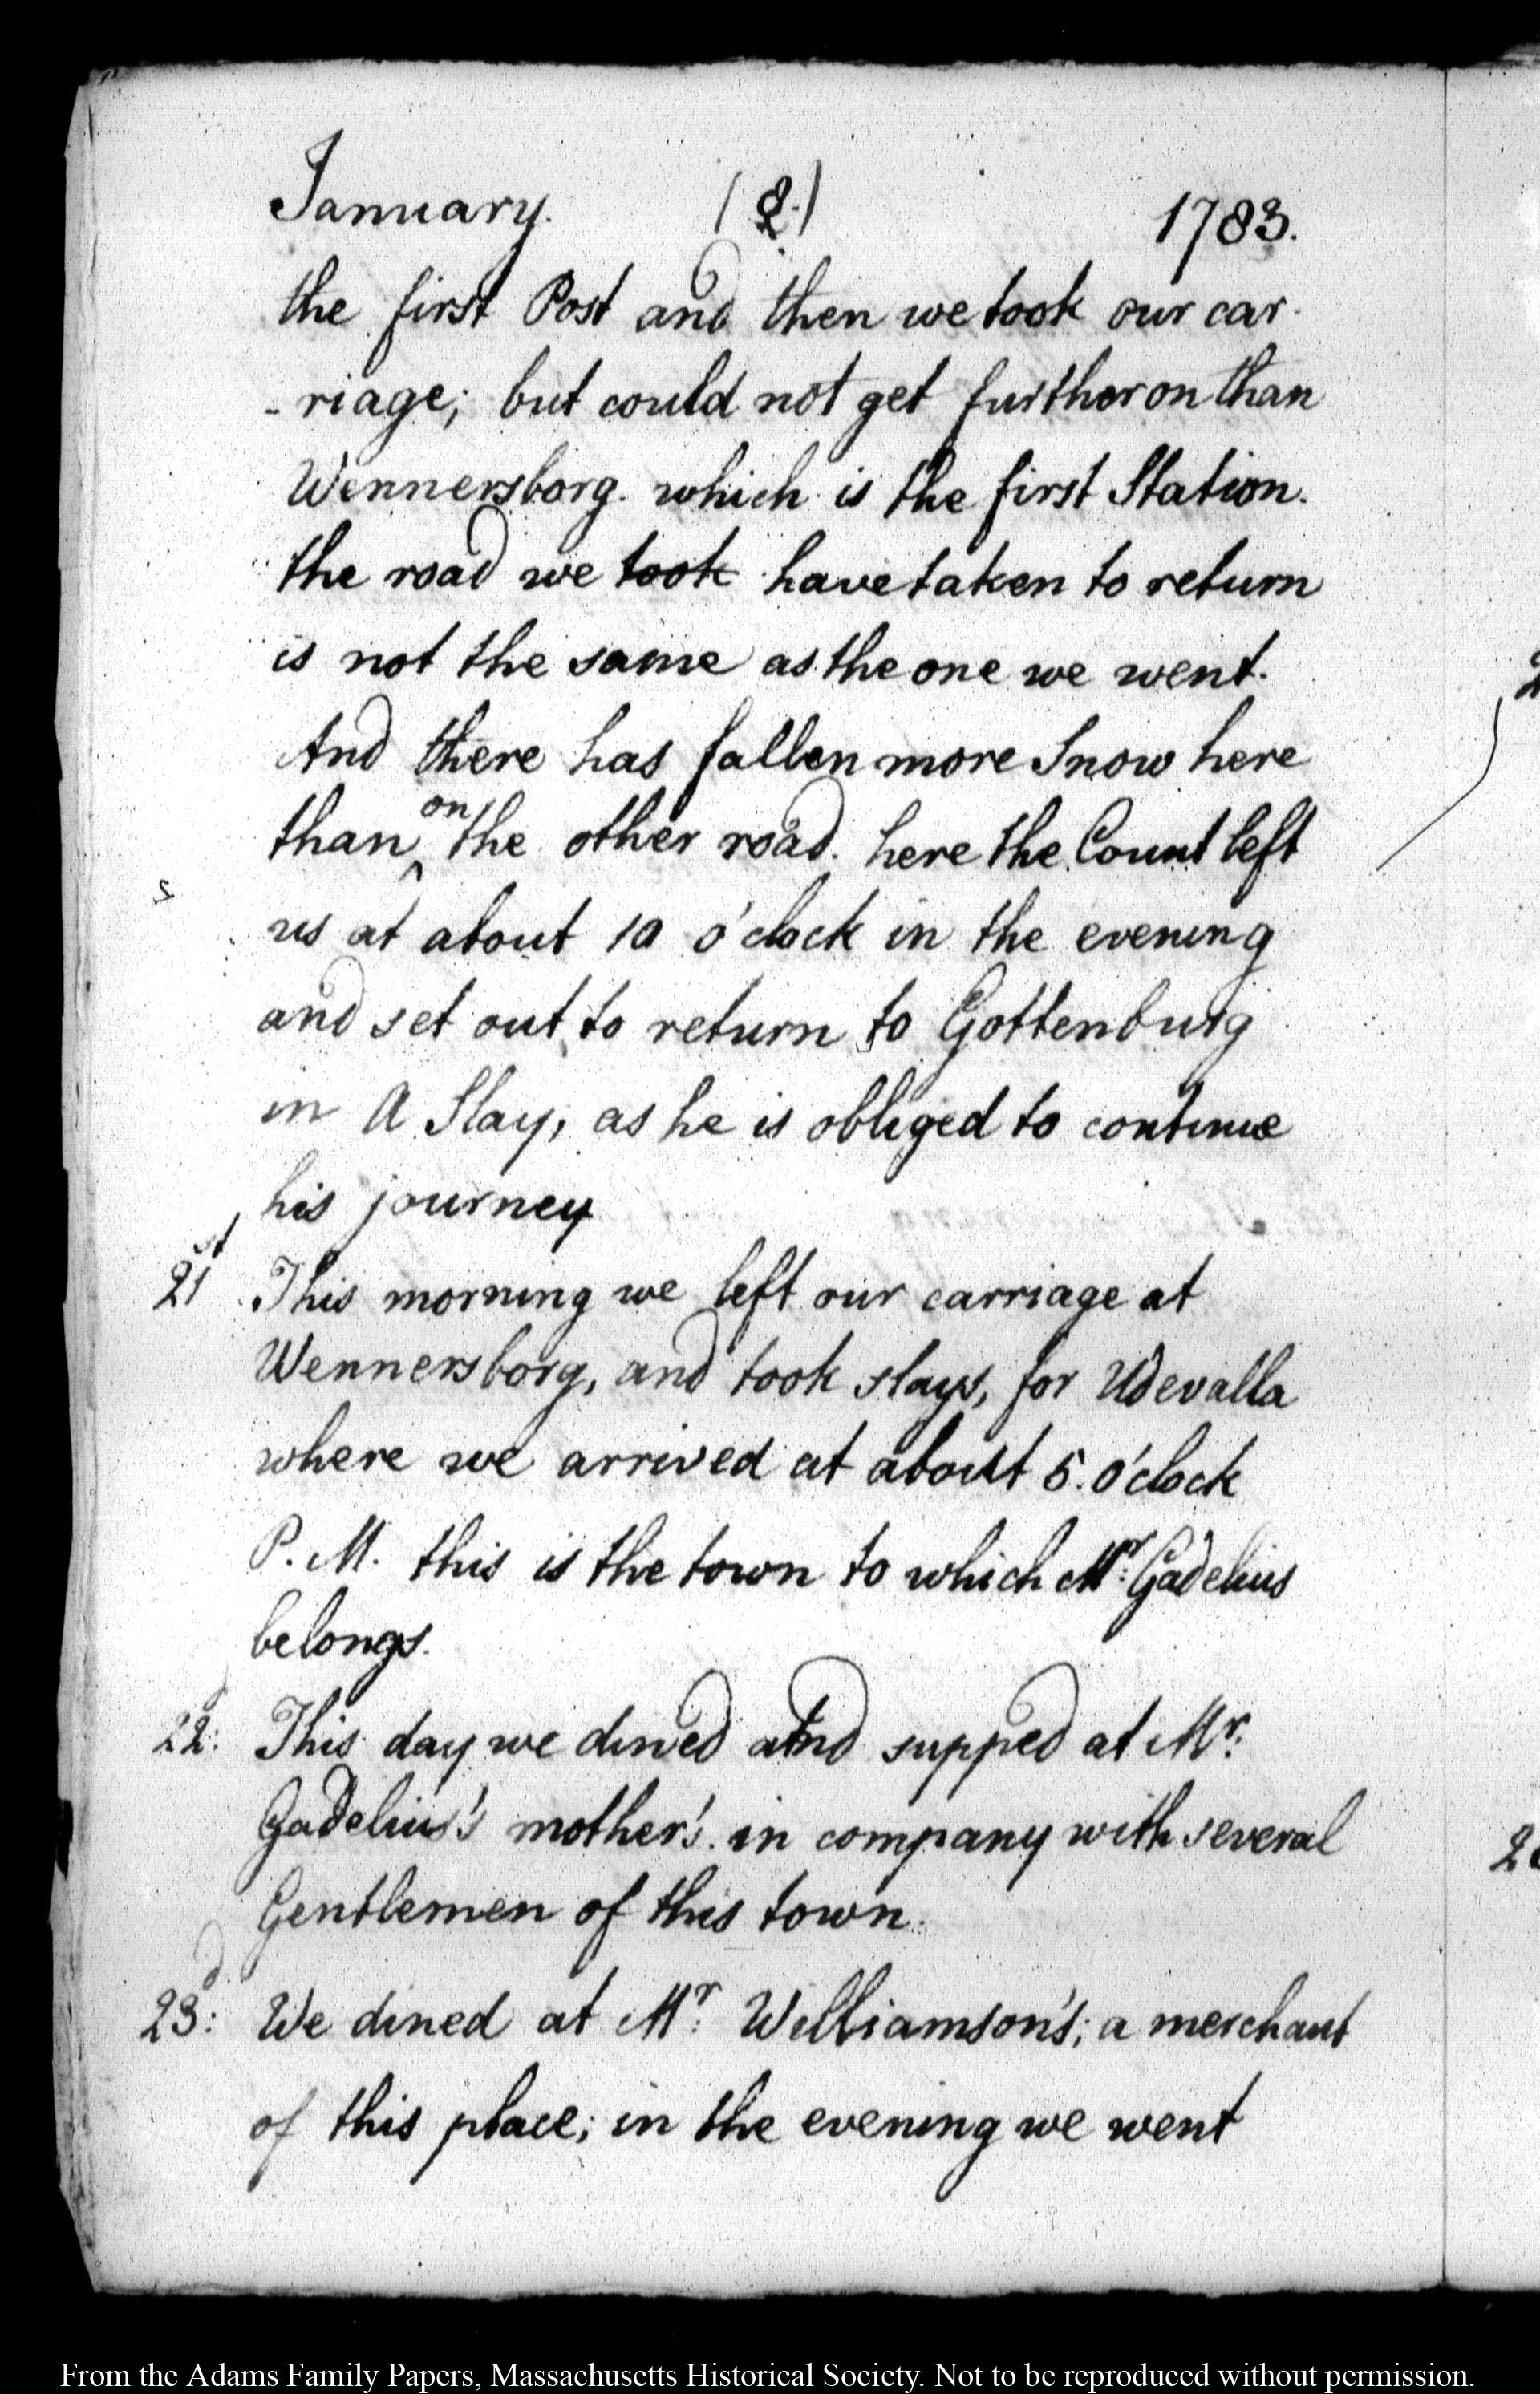 January. (8.) 1783.
the first Post and then we took our car-
-riage; but could not get further on than
Wennersborg. which is the first Station.
the road we took have taken to return
is not the same as the one we went.
And there has fallen more Snow here
than on the other road. here the Count left
us at about 10 o'clock in the evening
and set out to return to Gottenburg
in A Slay, as he is obliged to continue
his journey
21st This morning we left our carriage at
Wennersborg, and took slays, for Udevalla
where we arrived at about 5. o'clock
P. M. this is the town to which Mr: Gadelius
belongs.
22d: This day we dined and supped at Mr:
Gadelius's mother's. in company with several
Gentlemen of this town.
23d: We dined at Mr: Williamson's; a merchant
of this place; in the evening we went
From the Adams Family Papers, Massachusetts Historical Society. Not to be reproduced without permission.